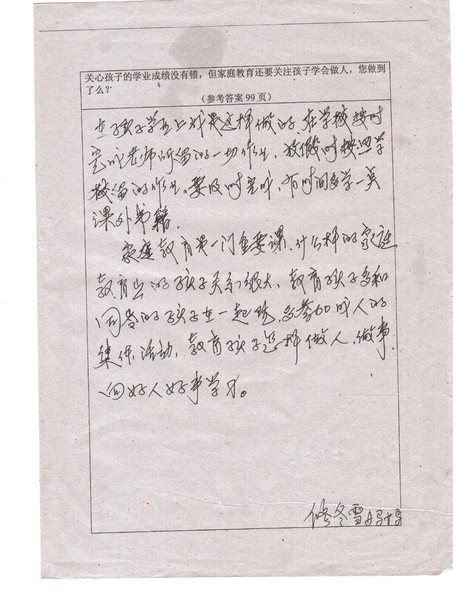 关心孩子的学业成绩没有错，但家庭教育还要关注孩子学会做人，您做到
了么？
（参考答案 99 页）
在孩子学习上我是这样做的，在学校按时
完成老师所留的一切作业，放假时按照学
校留的作业，要及时完成，有时间多学一点
课外书籍。
家庭教育第一门重要课，什么样的家庭
教育出的孩子关系很大，教育孩子多和
同学的孩子在一起玩，多参加成人的
集体活动，教育孩子怎样做人，做事
向好人好事学习。
修冬雪妈妈